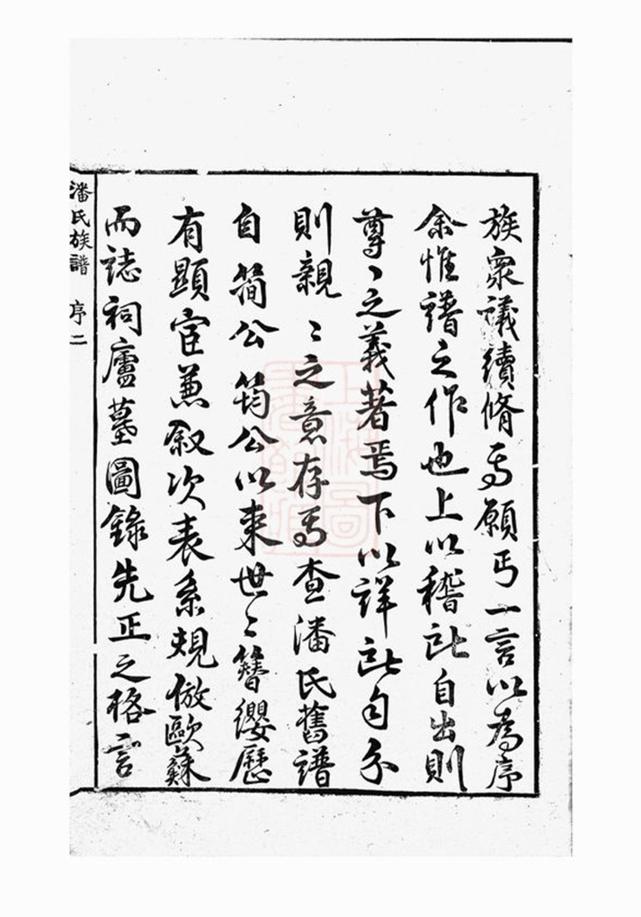 族衆議續脩焉願丐一言以為序
余惟譜之作也上以稽所自出則
尊〻之義著焉下以詳所自分
則親〻之意存焉查潘氏舊譜
自筒公筠公以來世〻簪纓歷
有顯宦兼叙次表系規倣歐蘇
而誌祠廬墓圖錄先正之格言
潘氏族譜 序二